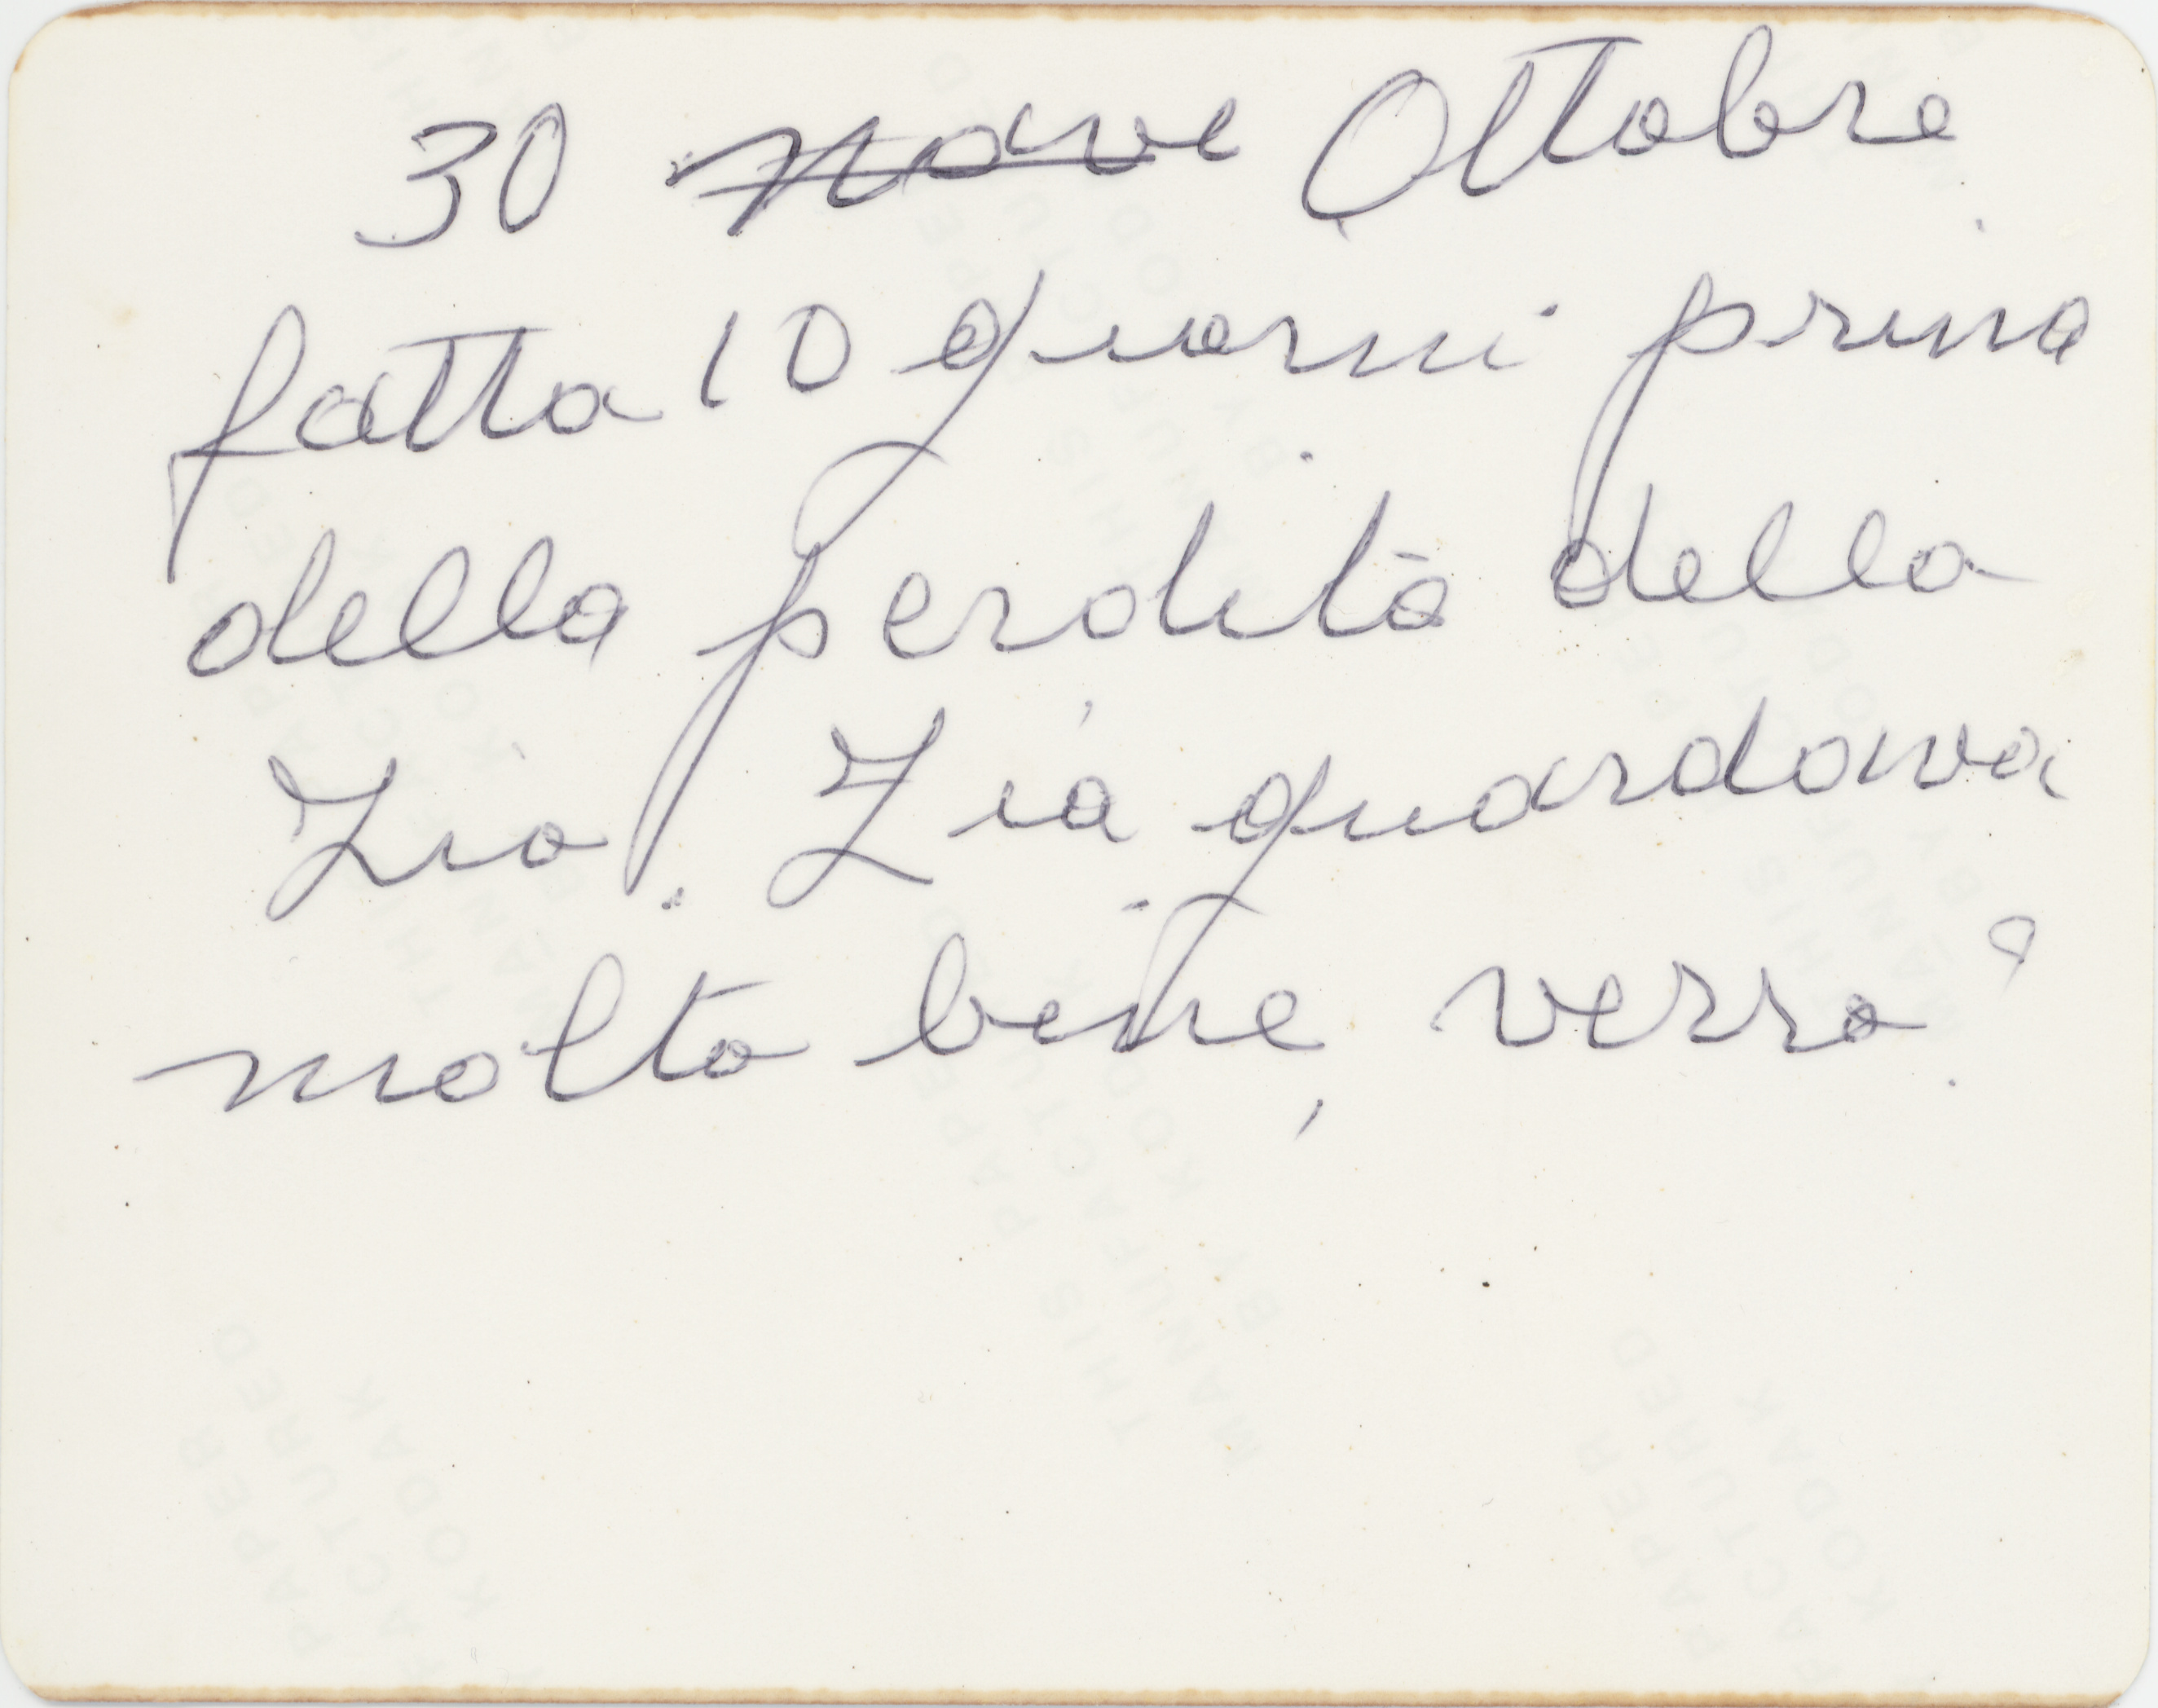 30 nove Ottobre
fatta 10 giorni prima
della perdità della
Zio. Zia guardava
molto bene, verro?
THIS PAPER
MANUFACTURED
BY KODAK